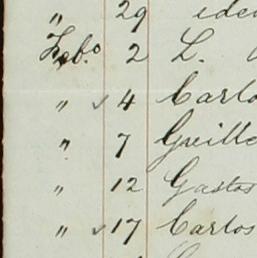 " 29
Feb.o 2 L.
" ✓ 4 Carlo
" 7 Guille
" 12 Gastos
" ✓ 17 Carlos